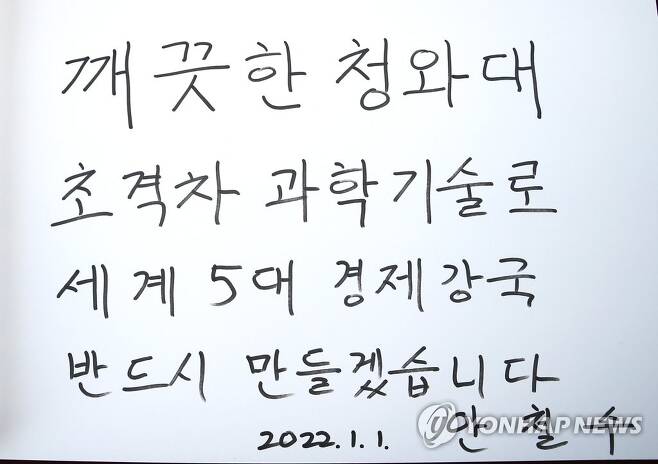 깨끗한 청와대
초격차 과학기술로
세계 5대 경제강국
반드시 만들겠습니다
2022.1.1. 안철수
YONHAP NEWS
YONHAP NEWS